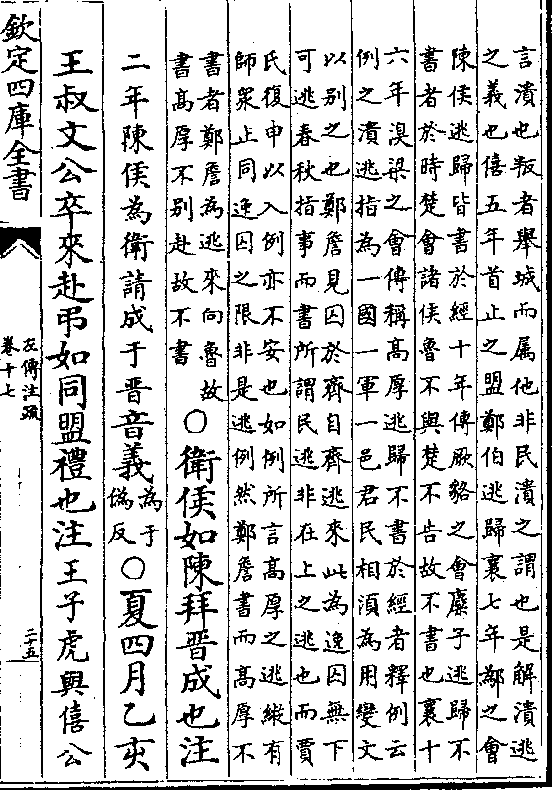 言潰也叛者舉城而屬他非民潰之謂也是解潰逃
之義也僖五年首止之盟鄭伯逃歸襄七年鄬之會
陳侯逃歸皆書於經十年傳厥貉之會麇子逃歸不
書者於時楚會諸侯魯不與楚不告故不書也襄十
六年溴梁之會傳稱高厚逃歸不書於經者釋例云
例之潰逃指為一國一軍一邑君民相須為用變文
以别之也鄭詹見囚於齊自齊逃來此為逸囚無下
可逃春秋指事而書所謂民逃非在上之逃也而賈
氏復申以入例亦不安也如例所言高厚之逃縱有
師衆止同逸囚之限非是逃例然鄭詹書而高厚不
書者鄭詹為逃來向魯故
書高厚不别赴故不書
○衛侯如陳拜晋成也注
二年陳侯為衛請成于晋音義為于
偽反
○夏四月乙亥
王叔文公卒來赴弔如同盟禮也注王子虎與僖公
欽定四庫全書
左傳注疏
卷十七
二十五